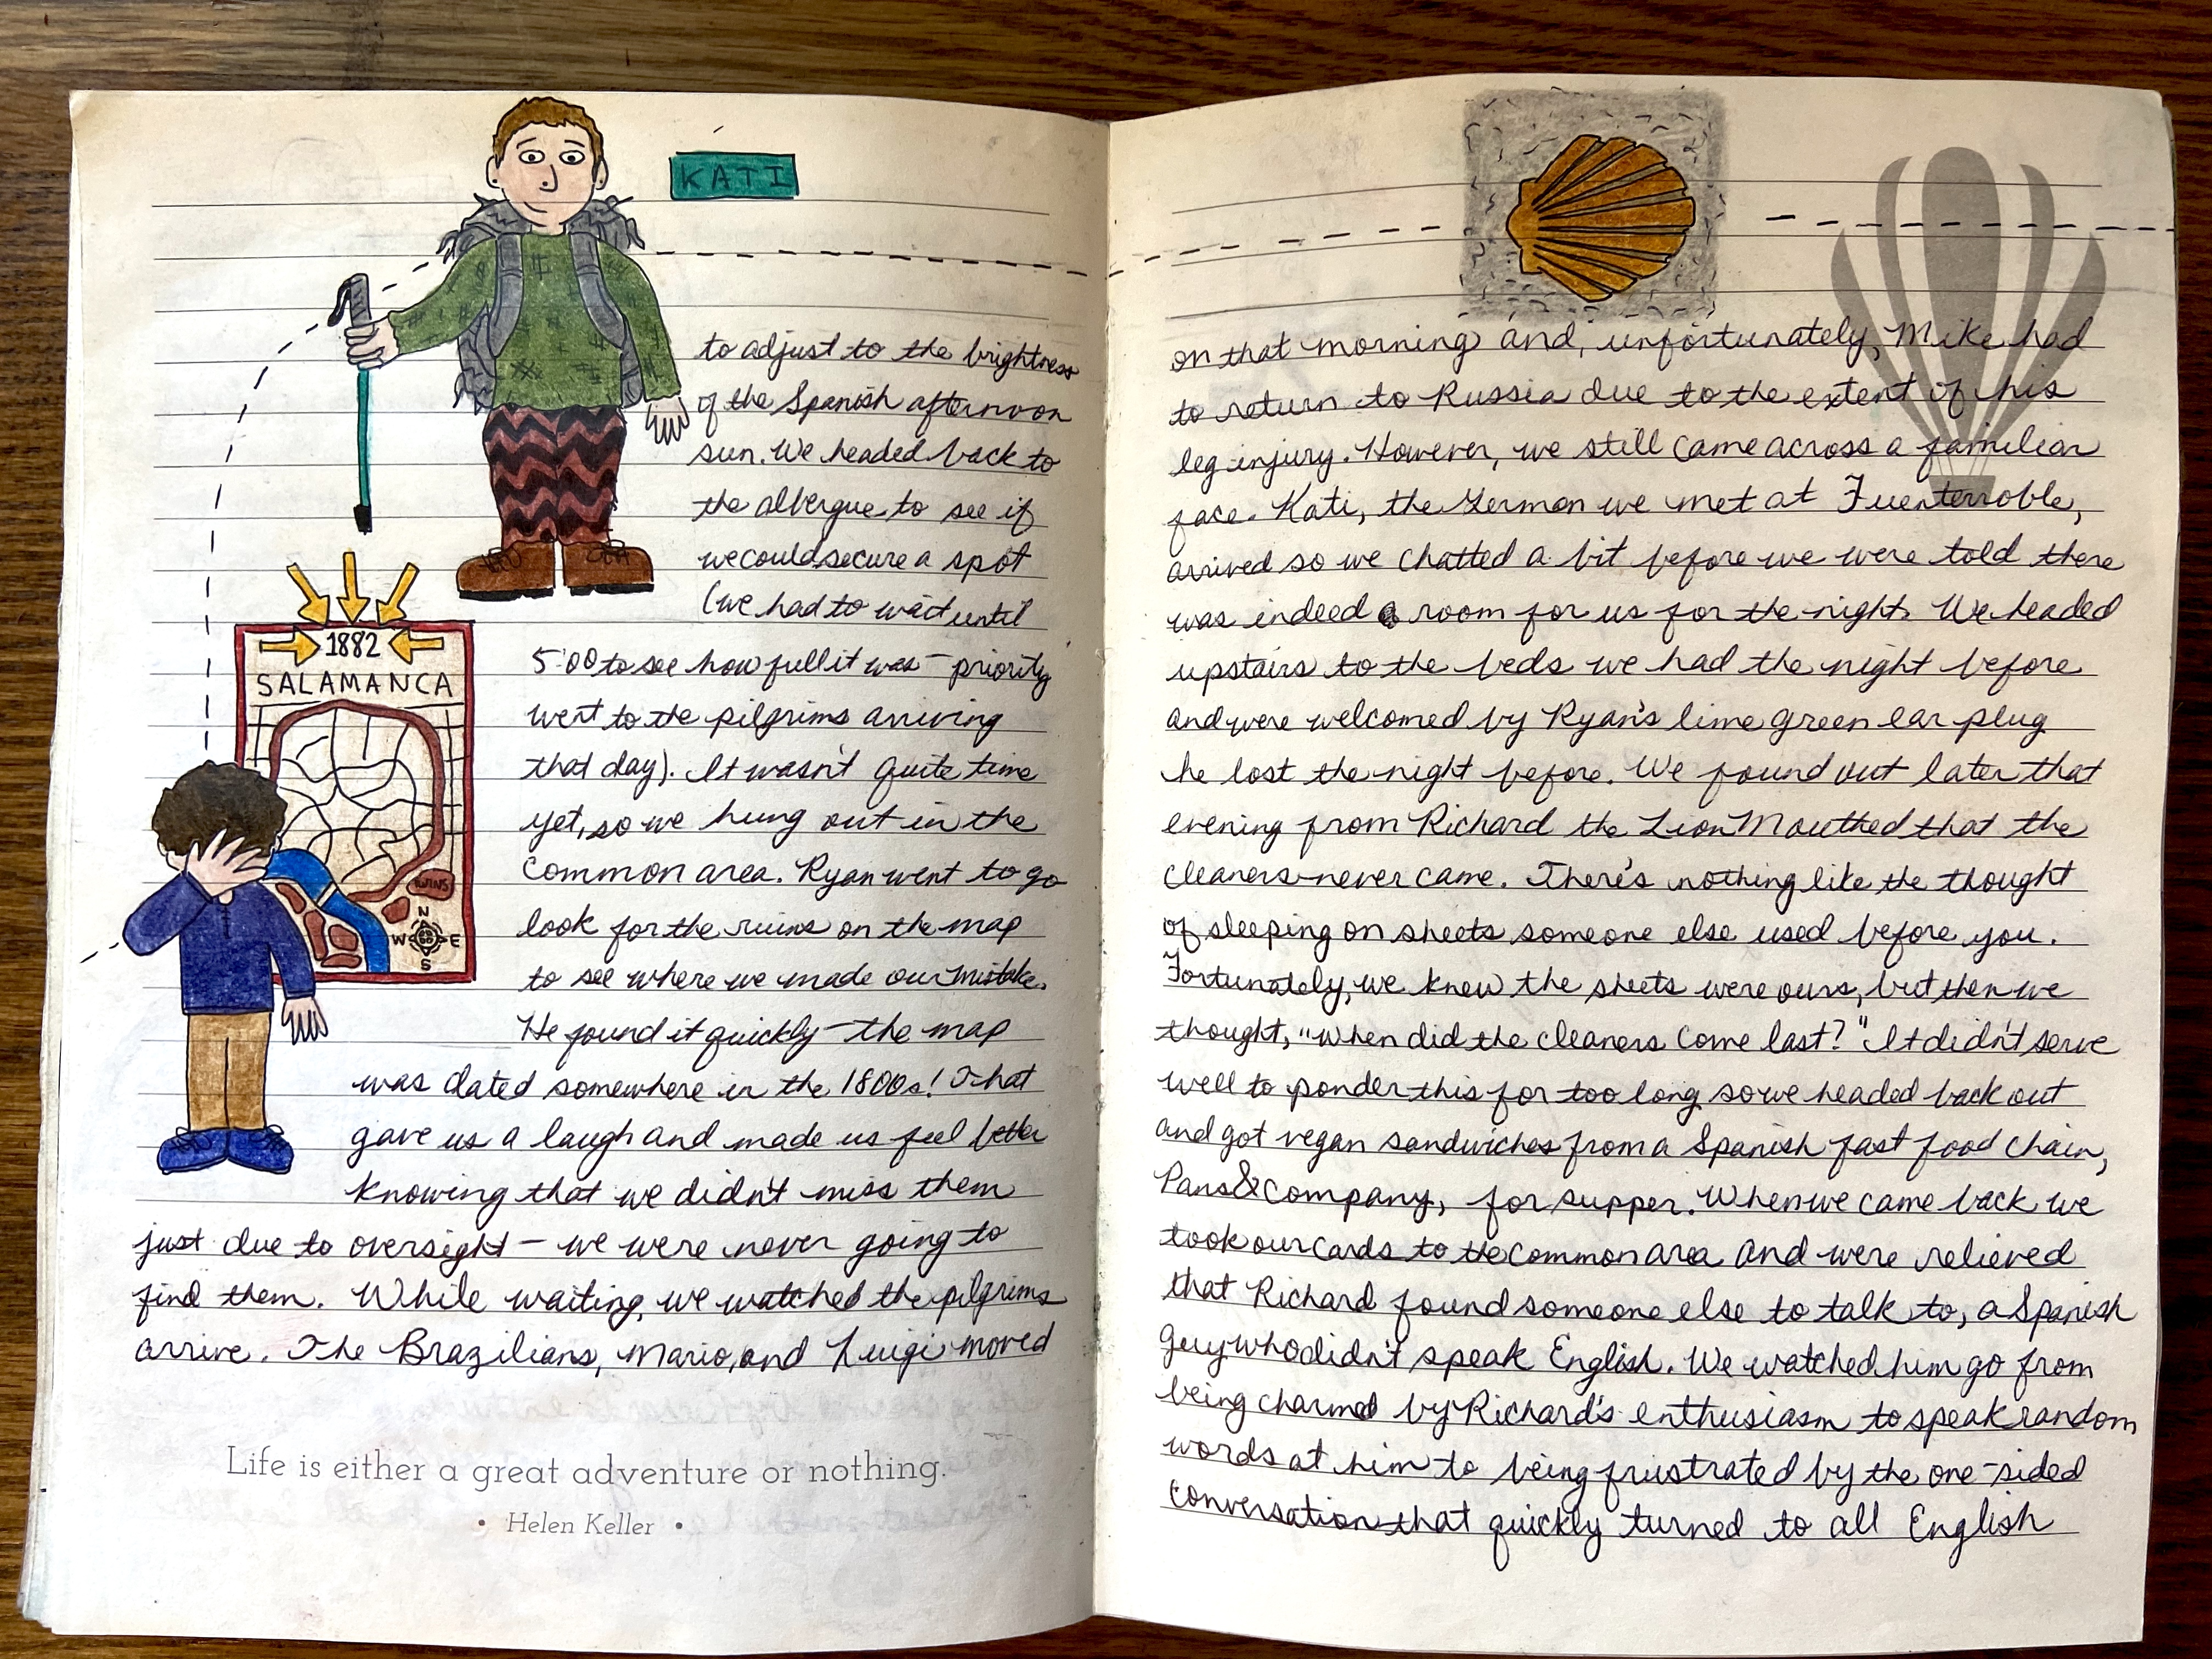 KATI
to adjust to the brightness
of the Spanish afternoon
sun. We headed back to
the albergue to see if
we could secure a spot
(we had to wait until
1882
SALAMANCA
RUINS
N
W E
S
5:00 to see how full it was – priority
went to the pilgrims arriving
that day). It wasn't quite time
yet, so we hung out in the
common area. Ryan went to go
look for the ruins on the map
to see where we made our mistake.
He found it quickly – the map
was dated somewhere in the 1800s! That
gave us a laugh and made us feel better
knowing that we didn't miss them
just due to oversight – we were never going to
find them. While waiting, we watched the pilgrims
arrive. The Brazilians, Mario, and Luigi moved
Life is either a great adventure or nothing.
• Helen Keller •
on that morning and, unfortunately, Mike had
to return to Russia due to the extent of his
leg injury. However, we still came across a familiar
face. Kati, the German we met at Fuenterroble,
arrived so we chatted a bit before we were told there
was indeed a room for us for the night. We headed
upstairs to the beds we had the night before
and were welcomed by Ryan's lime green ear plug
he lost the night before. We found out later that
evening from Richard the Lion Mouthed that the
cleaners never came. There's nothing like the thought
of sleeping on sheets someone else used before you.
Fortunately, we knew the sheets were ours, but then we
thought, "When did the cleaners come last?" It didn't serve
well to ponder this for too long so we headed back out
and got vegan sandwiches from a Spanish fast food chain,
Pans&Company, for supper. When we came back we
took our cards to the common area and were relieved
that Richard found someone else to talk to, a Spanish
guy who didn't speak English. We watched him go from
being charmed by Richard's enthusiasm to speak random
words at him to being frustrated by the one-sided
conversation that quickly turned to all English